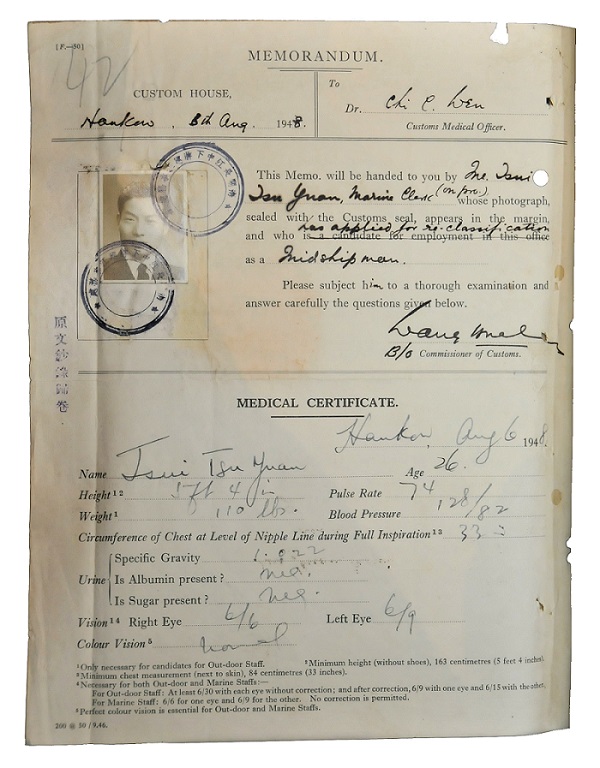 [F.—30]
42
MEMORANDUM.
CUSTOM HOUSE,
Hankow, 5th Aug. 1948.
To
Dr. Chi C. Wen
Customs Medical Officer.
This Memo. will be handed to you by Mr. Tsui
Tsu Yuan, Marine Clerk (on pro.) whose photograph,
sealed with the Customs seal, appears in the margin,
has applied for re-classification
and who is a candidate for employment in this office
as a Midshipman.
Please subject him to a thorough examination and
answer carefully the questions given below.
B/o Commissioner of Customs.
原文鈔錄歸卷
MEDICAL CERTIFICATE.
Hankow, Aug 6 1948.
Name Tsui Tsu Yuan Age 26.
Height¹² 5 ft 4 in Pulse Rate 74
Weight¹ 110 lbs. Blood Pressure 128/82
Circumference of Chest at Level of Nipple Line during Full Inspiration¹³ 33
Urine
Specific Gravity 1.022
Is Albumin present? neg.
Is Sugar present? neg.
Vision¹⁴ Right Eye 6/6 Left Eye 6/9
Colour Vision⁵ normal
¹Only necessary for candidates for Out-door Staff. ²Minimum height (without shoes), 163 centimetres (5 feet 4 inches).
³Minimum chest measurement (next to skin), 84 centimetres (33 inches).
⁴Necessary for both Out-door and Marine Staffs:—
For Out-door Staff: At least 6/30 with each eye without correction; and after correction, 6/9 with one eye and 6/15 with the other.
For Marine Staff: 6/6 for one eye and 6/9 for the other. No correction is permitted.
⁵Perfect colour vision is essential for Out-door and Marine Staffs.
200 @ 50 / 9.46.